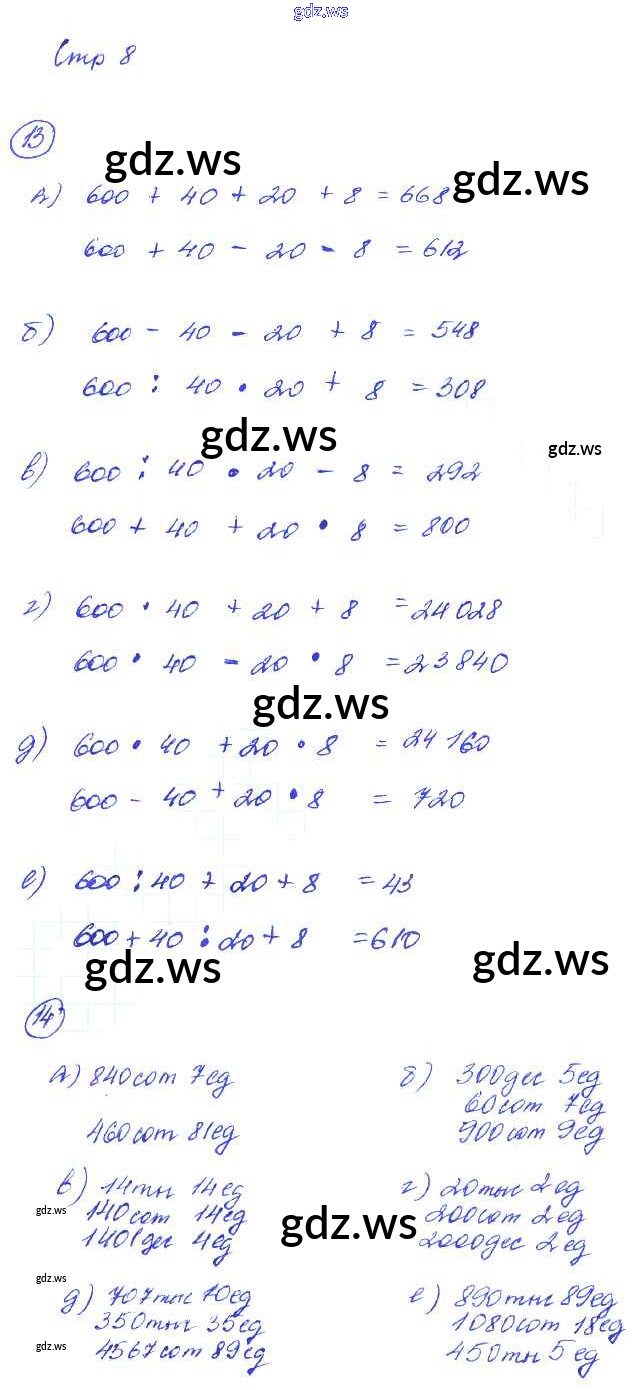 gdz.ws
Стр 8
13
gdz.ws
gdz.ws
А) 600 + 40 + 20 + 8 = 668
600 + 40 - 20 - 8 = 612
б) 600 - 40 - 20 + 8 = 548
600 : 40 • 20 + 8 = 308
gdz.ws
gdz.ws
в) 600 : 40 • 20 - 8 = 292
600 + 40 + 20 • 8 = 800
г) 600 • 40 + 20 + 8 = 24 028
600 • 40 - 20 • 8 = 23840
gdz.ws
д) 600 • 40 + 20 • 8 = 24 160
600 - 40 + 20 • 8 = 720
е) 600 : 40 + 20 + 8 = 43
600 + 40 : 20 + 8 = 610
gdz.ws
gdz.ws
14
А) 840сот 7ед
460сот 81ед
б) 300дес 5ед
60сот 7ед
900сот 9ед
в) 14тн 14ед
140сот 14ед
1401дес 4ед
gdz.ws
gdz.ws
г) 20тыс 2ед
200сот 2ед
2000дес 2ед
gdz.ws
д) 707тыс 70ед
350тыс 35ед
4567сот 89ед
gdz.ws
е) 890тыс 89ед
1080сот 18ед
450тн 5ед